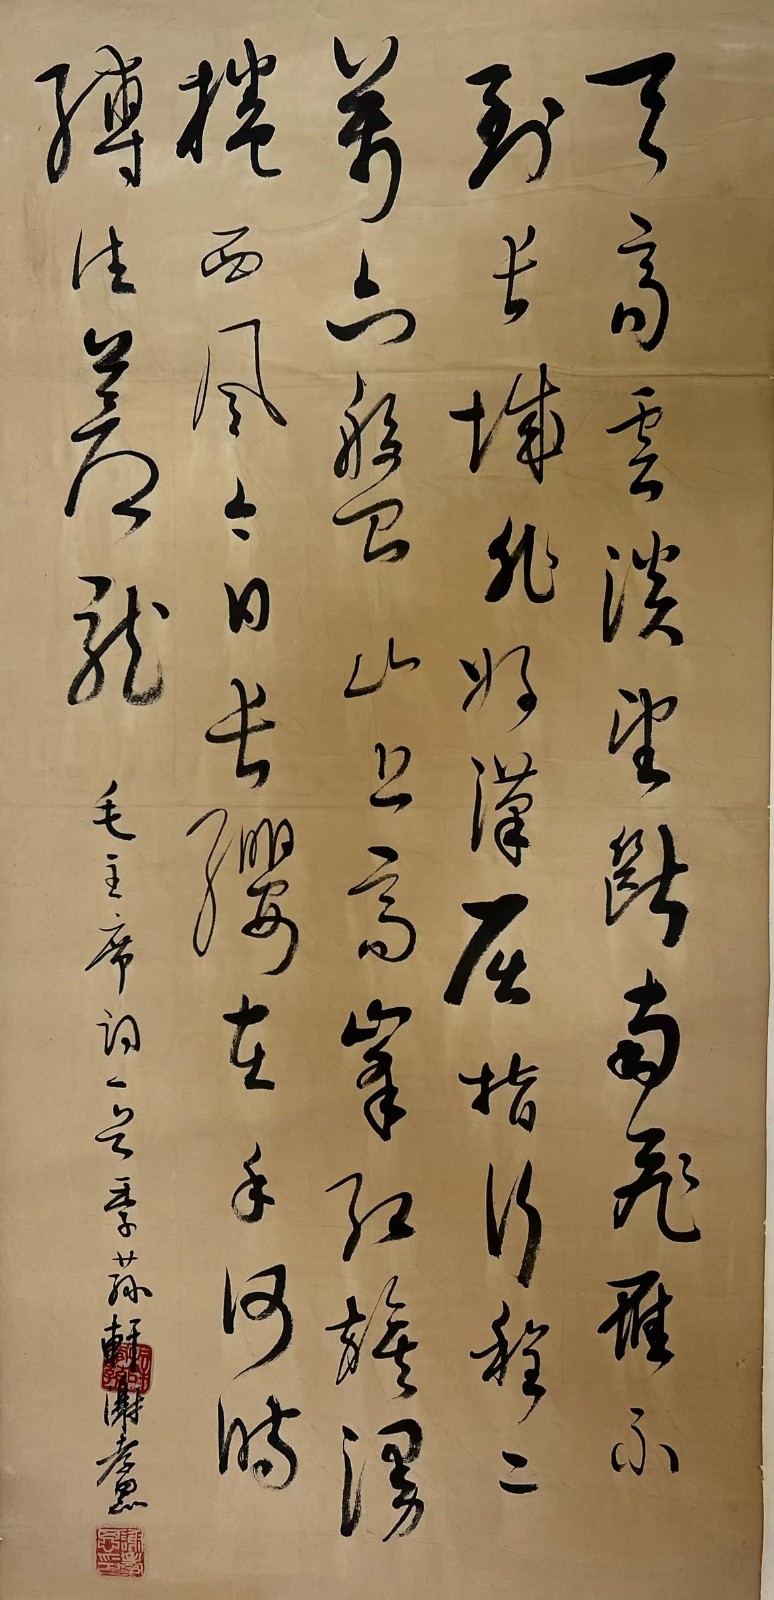 天高雲淡望斷南飛雁不
到長城非好漢屈指行程二
萬六盤山上高峯紅旗漫
捲西風今日長纓在手何時
縛住蒼龍
毛主席詞一首 季蓀軒謝孝思
謝孝思印